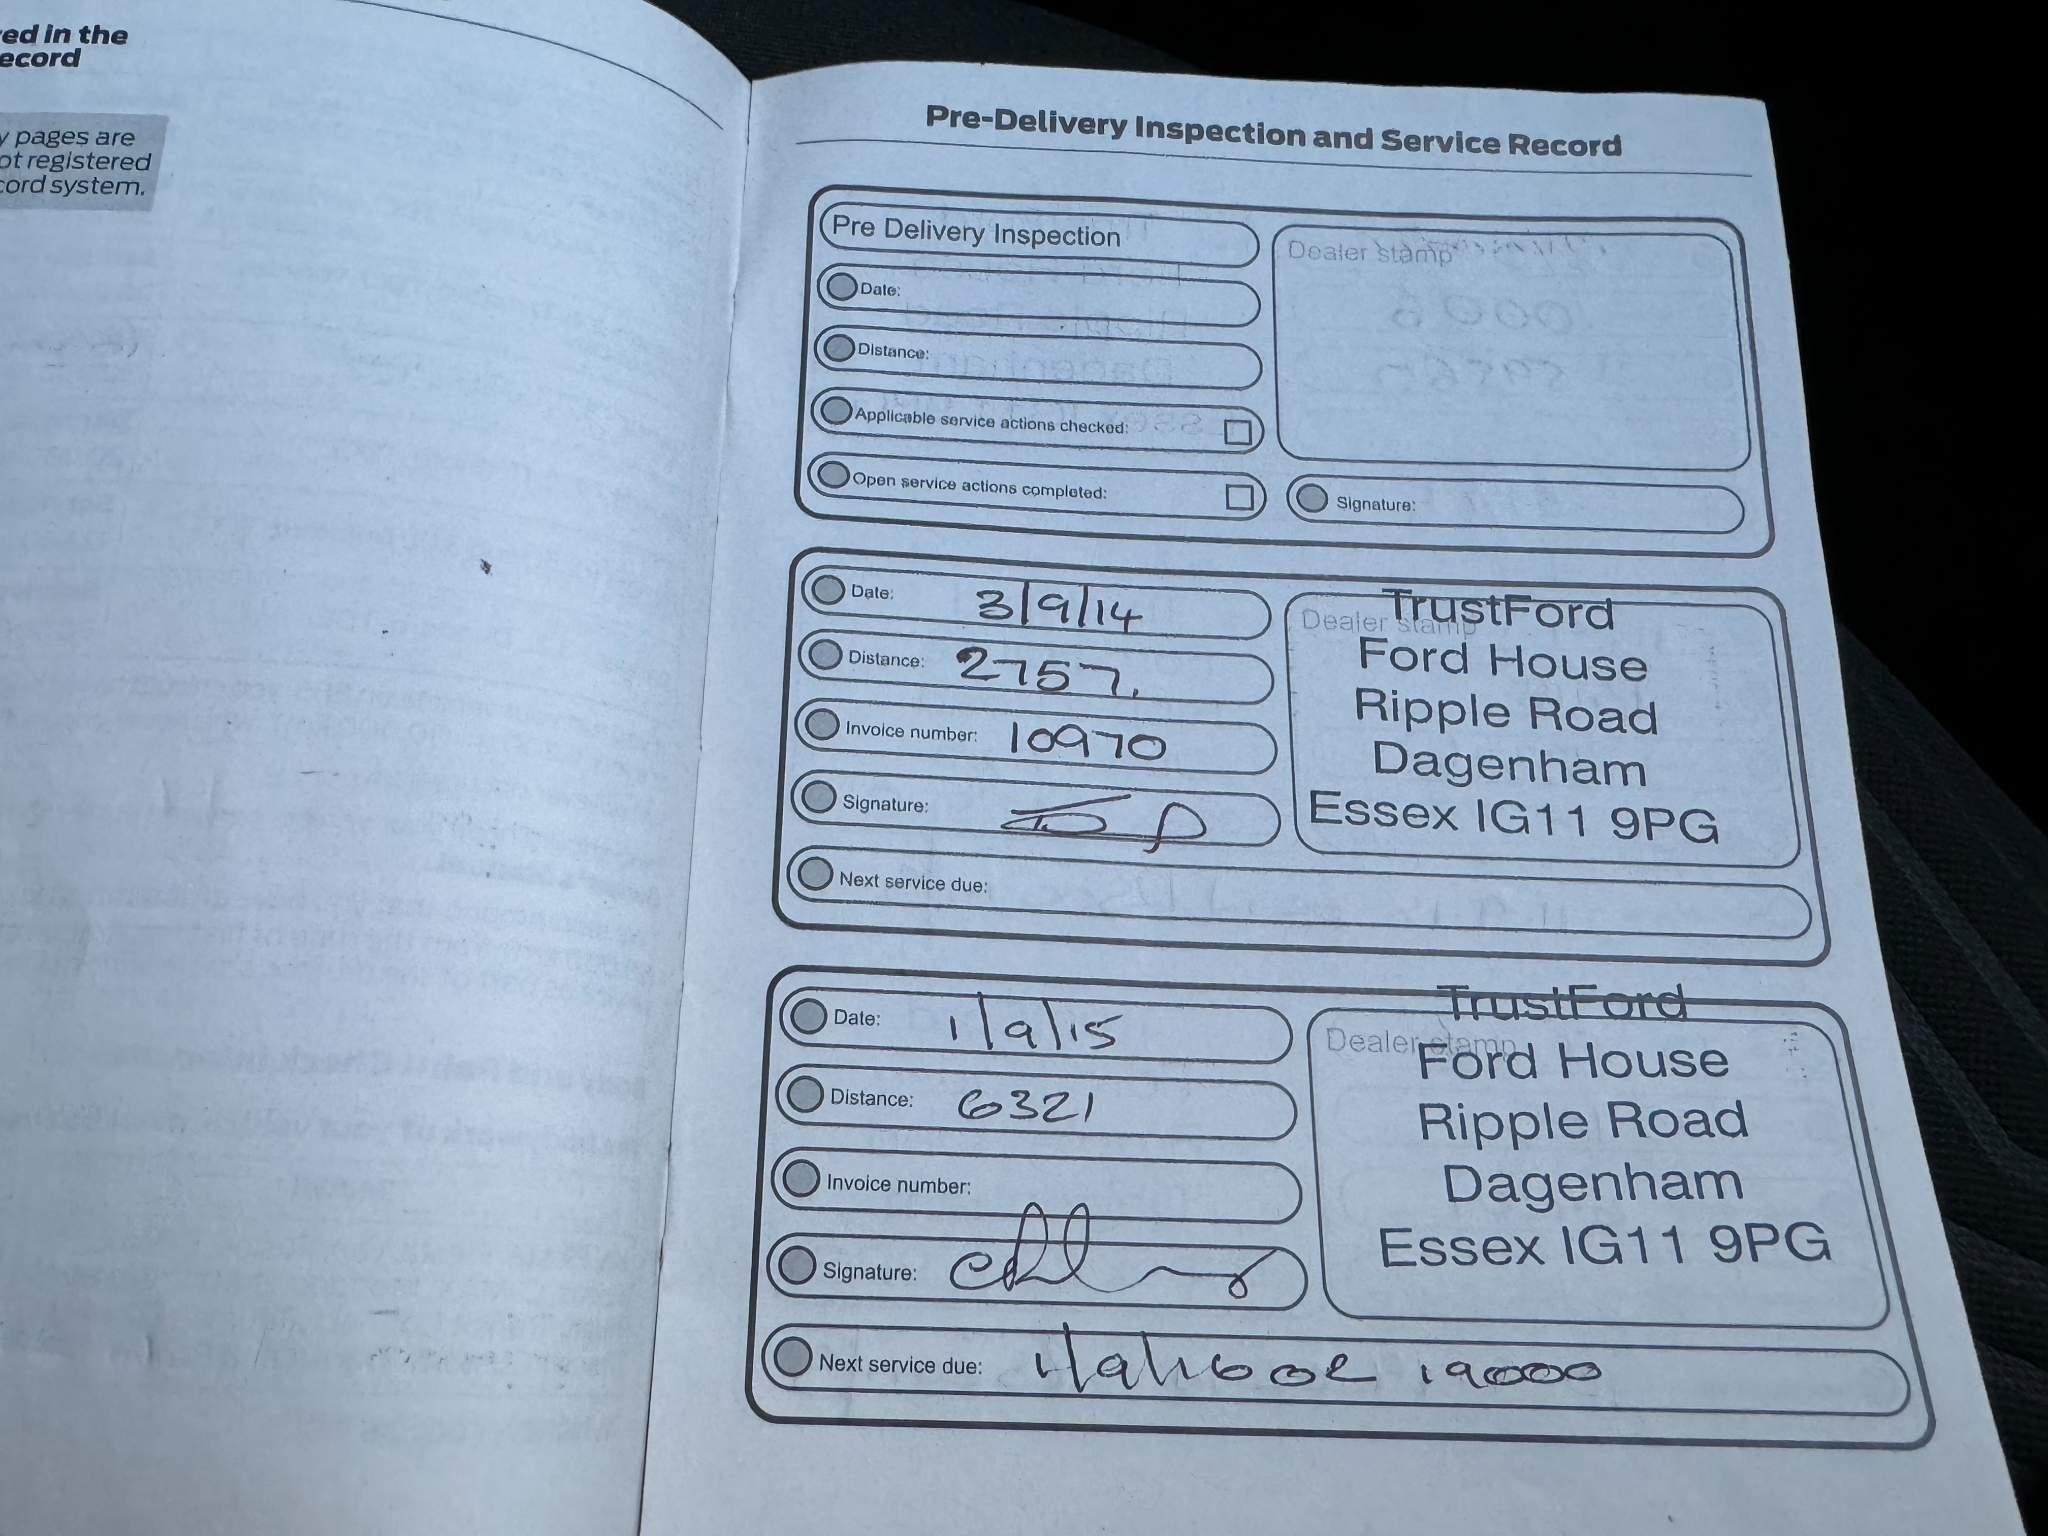 ed in the
ecord
y pages are
ot registered
cord system.
Pre-Delivery Inspection and Service Record
Pre Delivery Inspection
Date:
Distance:
Applicable service actions checked:
Open service actions completed:
Dealer stamp
Signature:
Date: 3/9/14
Distance: 2757.
Invoice number: 10970
Signature:
Next service due:
Dealer stamp
TrustFord
Ford House
Ripple Road
Dagenham
Essex IG11 9PG
Date: 1/9/15
Distance: 6321
Invoice number:
Signature:
Next service due: 1/9/16 OR 19000
Dealer stamp
TrustFord
Ford House
Ripple Road
Dagenham
Essex IG11 9PG